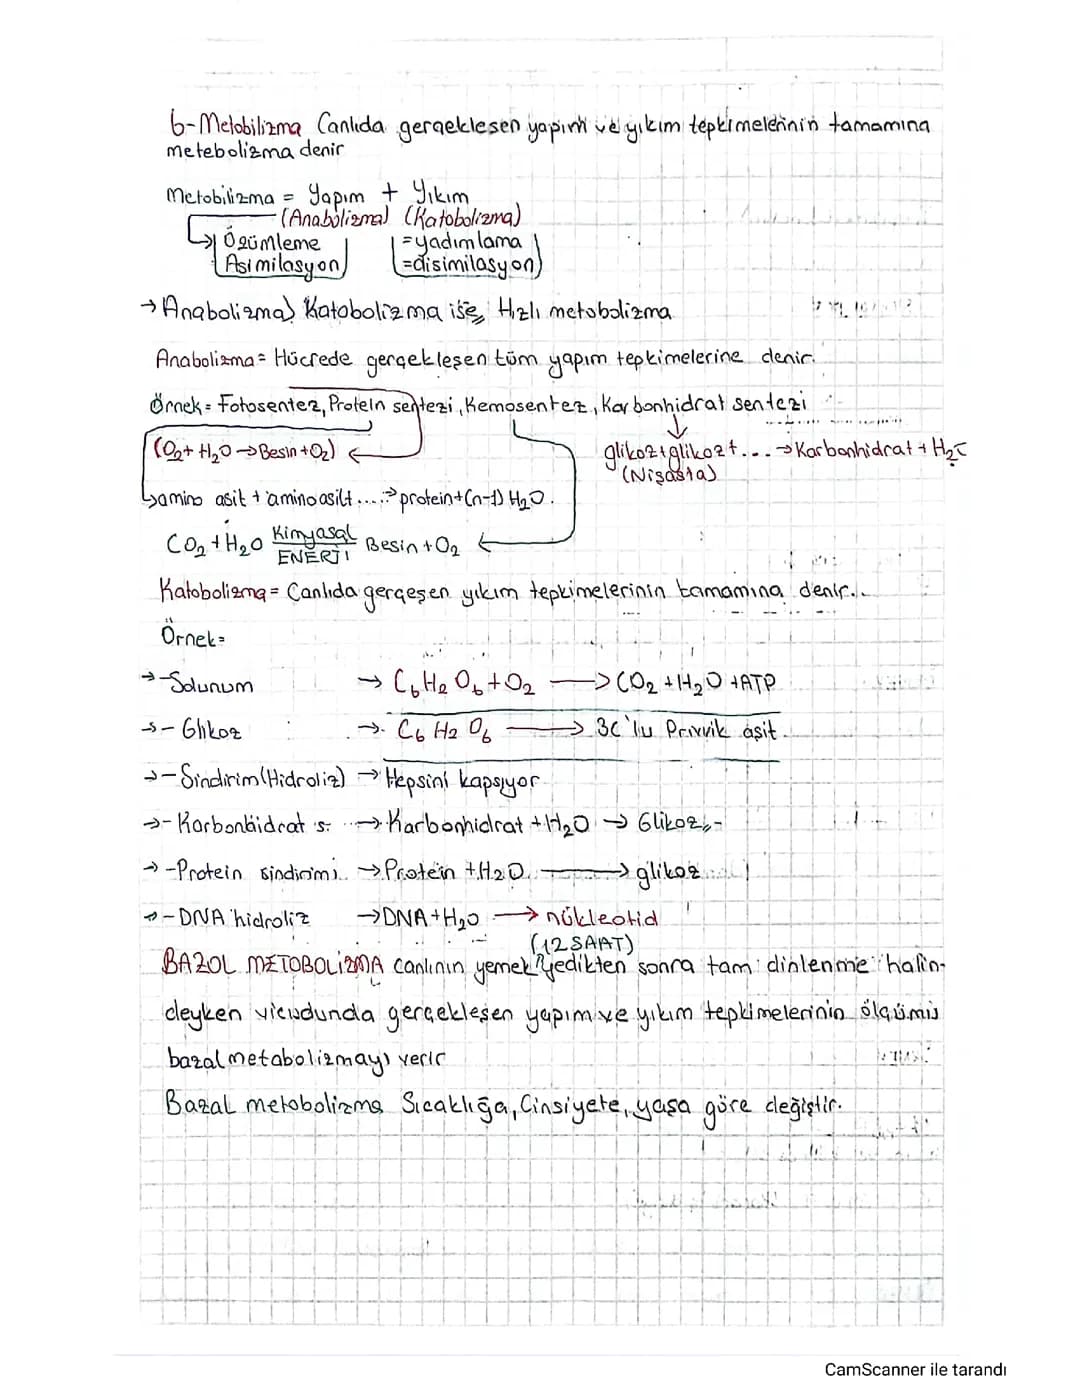 6-Metobilizma Canlıda gerçeklesen yapım ve yıkım tepkimelerinin tamamına
metebolizma denir
Metobilizma = Yapım + Yıkım
(Anabolizma) (Katobolizma)
Özümleme =yadımlama
Asimilasyon =disimilasyon
→Anabolizma> Katobolizma ise, Hızlı metobolizma
Anabolizma= Hücrede gerçekleşen tüm yapım tepkimelerine denir.
Örnek= Fotosentez, Protein sentezi, Kemosentez, Karbonhidrat sentezi
(O2+ H2O→Besin+O2) glikoz+glikozt...→Karbonhidrat + H2O
(Nişasta)
amino asit + aminoasilt....→protein+(n-1) H2O.
CO2+H2O Kimyasal ENERJİ Besin+O2
Katobolizma= Canlıda gerçeşen yıkım tepkimelerinin tamamına denir.
Örnek=
→-Solunum → C6H2O6+O2 → CO2+H2O+ATP
→-Glikoz → C6H2O6 → 3C'lu Prüvik asit.
→-Sindirim(Hidroliz) →Hepsini kapsıyor
→-Karbonhidrat s. →Karbonhidrat +H2O → Glikoz
→-Protein sindirimi →Protein +H2O → glikoz
→-DNA hidroliz →DNA+H2O → nükleotid
(12 SAAT)
BAZOL METOBOLİZMA canlının yemek yedikten sonra tam dinlenme halin-
deyken vicudunda gerçekleşen yapım ve yıkım tepkimelerinin ölçümü
bazal metabolizmayı verir
Bazal metobolizma Sıcaklığa, Cinsiyete, yaşa göre değiştir.
CamScanner ile tarandı